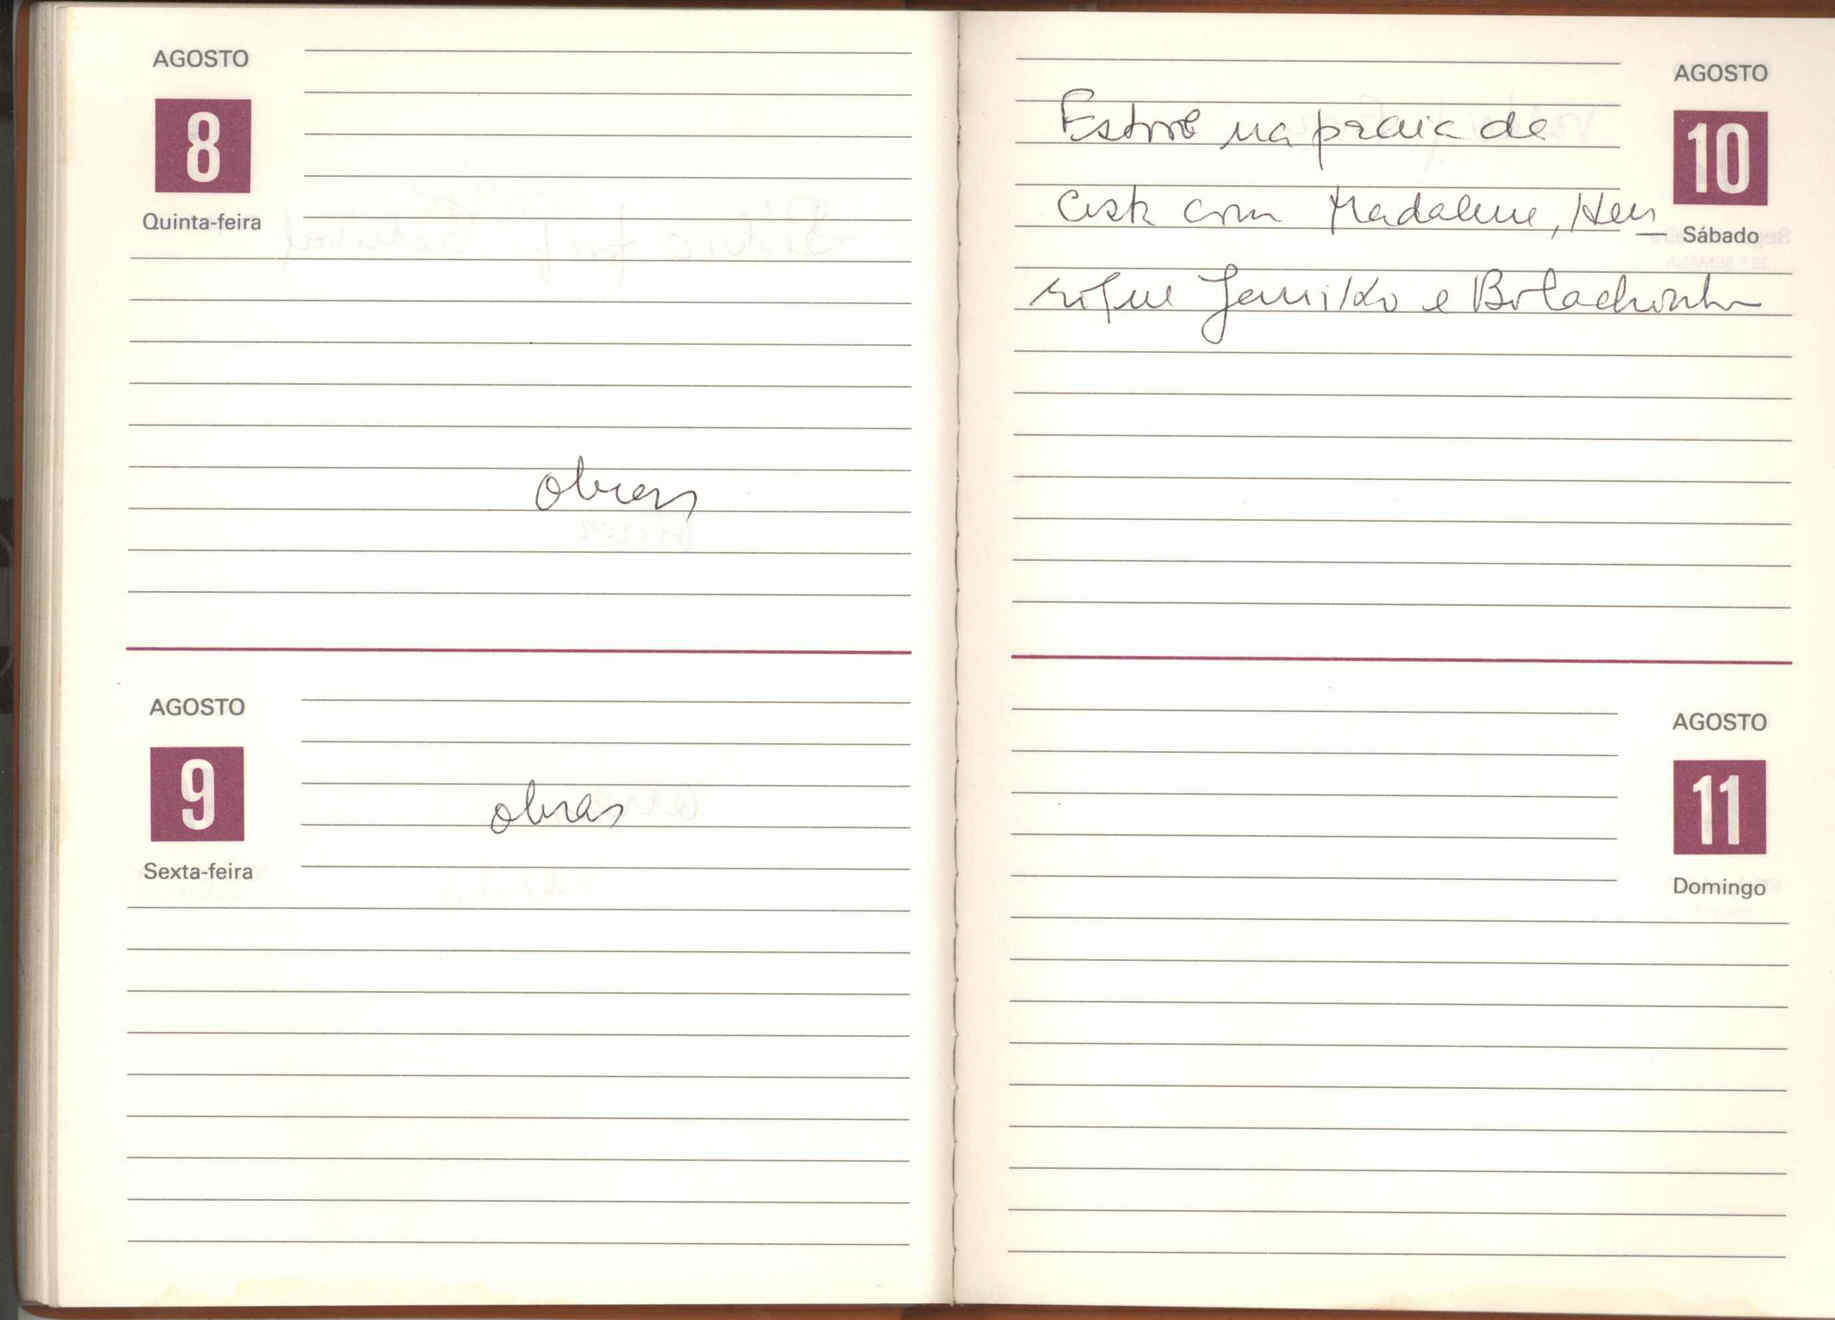 AGOSTO
8
Quinta-feira
obras
AGOSTO
9
Sexta-feira
obras
AGOSTO
10
Sábado
Estive na praia de
com Madalena, Hen_
rique e Bolachinha
AGOSTO
11
Domingo